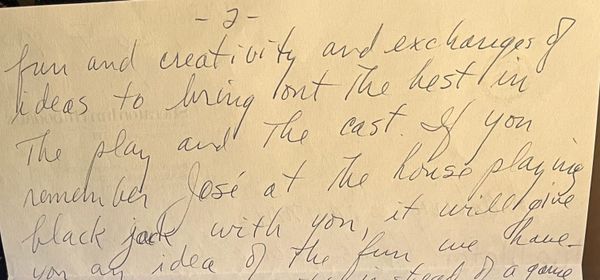 - 2 -
fun and creativity and exchanges of
ideas to bring out the best in
The play and The cast. If you
remember José at the house playing
black jack with you, it will give
you an idea of the fun we have -
instead of a game